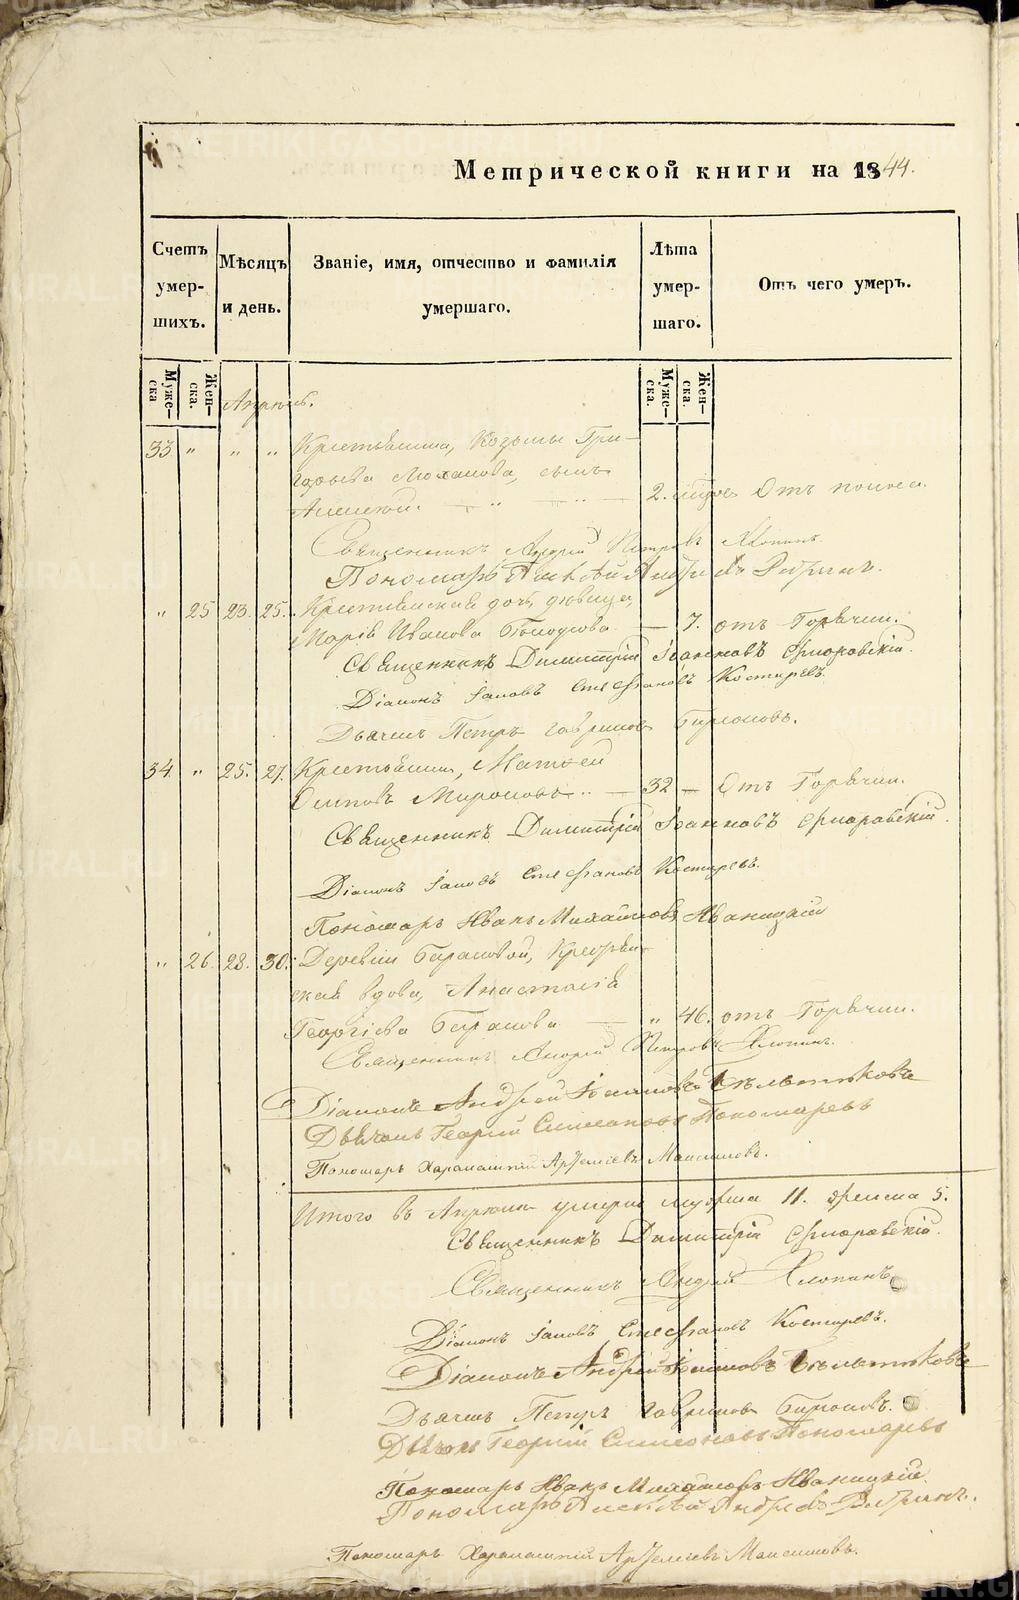 Метрической книги на 1844.
Счетъ умер-шихъ.
Мѣсяцъ и день.
Званіе, имя, отчество и фамилія умершаго.
Лѣта умер-шаго.
Отъ чего умеръ.
Муже-ска
Жен-ска.
Муже-ска.
Жен-ска.
Апрель.
33 " " " Крестьянина, Козьмы Гри-
горьева сынъ
Алексей. 2. Отъ поноса.
Священникъ Андрей Петровъ Хлопинъ
Пономарь Алексѣй Андреевъ
" 25 23. 25. Крестьянская дочь, девица,
Марія Иванова — 7. отъ Горячки.
Священникъ Димитрій Іоанновъ Флоровскій.
Діаконъ Іаковъ Стефановъ Костыревъ.
Дьячекъ Петръ Гавриловъ Бирюковъ.
34 " 25. 27. Крестьянинъ, Матѳей
Осиповъ Мироновъ — 32 — Отъ Горячки.
Священникъ Димитрій Іоанновъ Флоровскій.
Діаконъ Іаковъ Стефановъ Костыревъ.
Пономарь Иванъ Михайловъ Иваницкій
" 26. 28. 30. Деревни Барановой, Крестьян-
ская вдова, Анастасія
Георгіева Баранова — " 46. отъ Горячки.
Священникъ Андрей Петровъ Хлопинъ.
Діаконъ Андрей Іоанновъ
Дьячекъ Георгій Симеоновъ Пономаревъ
Пономарь Харалампій Артемьевъ Максимовъ.
Итого въ Апреле умерло мужеска 11. женска 5.
Священникъ Димитрій Флоровскій.
Священникъ Андрей Хлопинъ
Діаконъ Іаковъ Стефановъ Костыревъ.
Діаконъ Андрей Іоанновъ
Дьячекъ Петръ Гавриловъ Бирюковъ.
Дьячекъ Георгій Симеоновъ Пономаревъ
Пономарь Иванъ Михайловъ Иваницкій.
Пономарь Алексѣй Андреевъ
Пономарь Харалампій Артемьевъ Максимовъ.